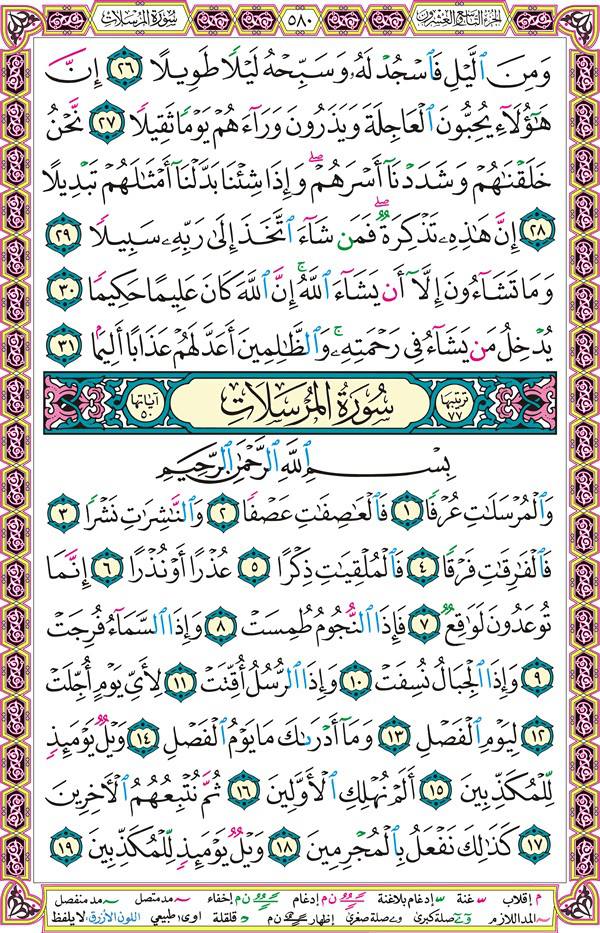 سُورَةُ المُرسَلات
٥٨٠
الجزء التاسع والعشرون
وَمِنَ ٱلَّيۡلِ فَٱسۡجُدۡ لَهُۥ وَسَبِّحۡهُ لَيۡلٗا طَوِيلًا ٢٦ إِنَّ
هَٰٓؤُلَآءِ يُحِبُّونَ ٱلۡعَاجِلَةَ وَيَذَرُونَ وَرَآءَهُمۡ يَوۡمٗا ثَقِيلٗا ٢٧ نَّحۡنُ
خَلَقۡنَٰهُمۡ وَشَدَدۡنَآ أَسۡرَهُمۡۖ وَإِذَا شِئۡنَا بَدَّلۡنَآ أَمۡثَٰلَهُمۡ تَبۡدِيلًا
٢٨ إِنَّ هَٰذِهِۦ تَذۡكِرَةٞۖ فَمَن شَآءَ ٱتَّخَذَ إِلَىٰ رَبِّهِۦ سَبِيلٗا ٢٩
وَمَا تَشَآءُونَ إِلَّآ أَن يَشَآءَ ٱللَّهُۚ إِنَّ ٱللَّهَ كَانَ عَلِيمًا حَكِيمٗا ٣٠
يُدۡخِلُ مَن يَشَآءُ فِي رَحۡمَتِهِۦۚ وَٱلظَّٰلِمِينَ أَعَدَّ لَهُمۡ عَذَابًا أَلِيمَۢا ٣١
ترتيبها ٧٧ سُورَةُ المُرسَلَاتِ آياتها ٥٠
بِسۡمِ ٱللَّهِ ٱلرَّحۡمَٰنِ ٱلرَّحِيمِ
وَٱلۡمُرۡسَلَٰتِ عُرۡفٗا ١ فَٱلۡعَٰصِفَٰتِ عَصۡفٗا ٢ وَٱلنَّٰشِرَٰتِ نَشۡرٗا ٣
فَٱلۡفَٰرِقَٰتِ فَرۡقٗا ٤ فَٱلۡمُلۡقِيَٰتِ ذِكۡرًا ٥ عُذۡرًا أَوۡ نُذۡرًا ٦ إِنَّمَا
تُوعَدُونَ لَوَٰقِعٞ ٧ فَإِذَا ٱلنُّجُومُ طُمِسَتۡ ٨ وَإِذَا ٱلسَّمَآءُ فُرِجَتۡ
٩ وَإِذَا ٱلۡجِبَالُ نُسِفَتۡ ١٠ وَإِذَا ٱلرُّسُلُ أُقِّتَتۡ ١١ لِأَيِّ يَوۡمٍ أُجِّلَتۡ
١٢ لِيَوۡمِ ٱلۡفَصۡلِ ١٣ وَمَآ أَدۡرَىٰكَ مَا يَوۡمُ ٱلۡفَصۡلِ ١٤ وَيۡلٞ يَوۡمَئِذٖ
لِّلۡمُكَذِّبِينَ ١٥ أَلَمۡ نُهۡلِكِ ٱلۡأَوَّلِينَ ١٦ ثُمَّ نُتۡبِعُهُمُ ٱلۡأٓخِرِينَ
١٧ كَذَٰلِكَ نَفۡعَلُ بِٱلۡمُجۡرِمِينَ ١٨ وَيۡلٞ يَوۡمَئِذٖ لِّلۡمُكَذِّبِينَ ١٩
م إقلاب س غنة س إدغام بلاغنة ن م إدغام ن م إخفاء مد متصل مد منفصل
المد اللازم صلة كبرى صلة صغرى إظهار ن م قلقلة اوى طبيعي اللون الأزرق لا يلفظ